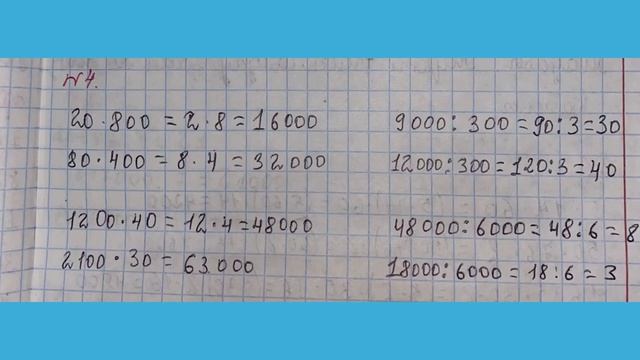 №4.
20·800 = 2·8 = 16000
80·400 = 8·4 = 32000
1200·40 = 12·4 = 48000
2100·30 = 63000
9000:300 = 90:3 = 30
12000:300 = 120:3 = 40
48000:6000 = 48:6 = 8
18000:6000 = 18:6 = 3